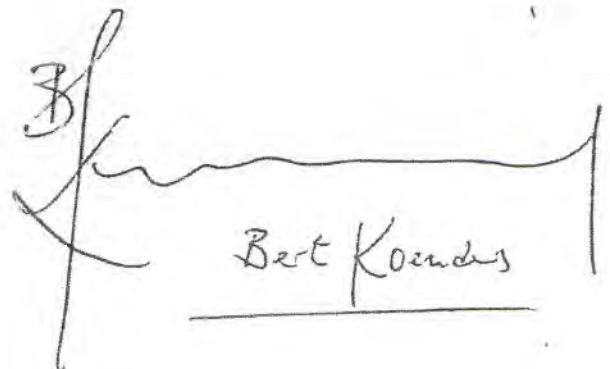 Bert Koenders